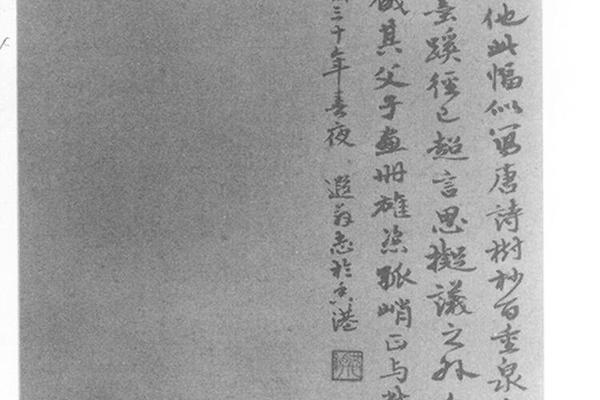 他此幅似写唐詩樹杪百重泉
蹊徑已超言思擬議之外
藏其父子畫册雄恣孤峭正与
三十年春夜 遐翁志於香港